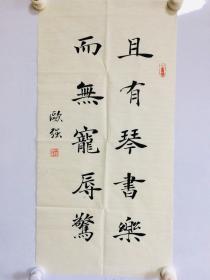 且有琴書樂
而無寵辱驚
歐強